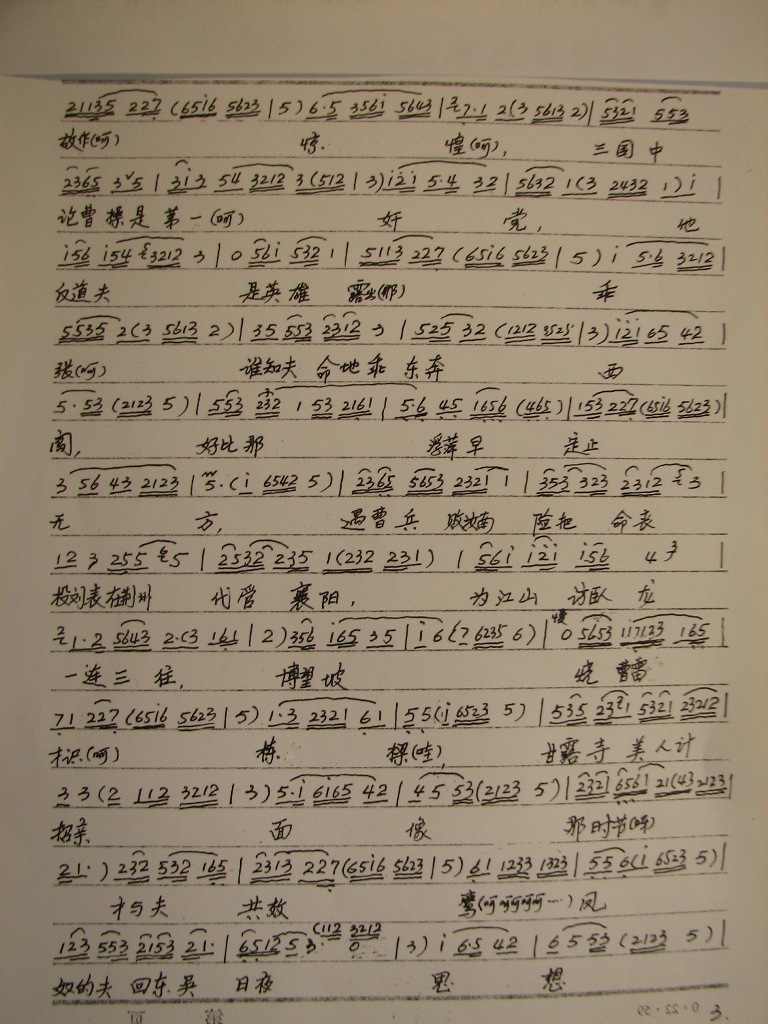 21135 227 (6516 5623 | 5) 6·5 3561 5643 | 7·1 2(3 5613 2) | 5321 553
故作(呵) 惊 惶(呵), 三国中
2365 3 5 | 313 54 3212 3(512 | 3) i21 5·4 32 | 5632 1(3 2432 1) i |
论曹操是第一(呵) 奸 党, 他
i56 i54 3212 3 | 0 561 532 1 | 5113 227 (6516 5623 | 5) i 5·6 3212 |
反道夫 是英雄 露出(那) 乖
5535 2(3 5613 2) | 35 553 2312 3 | 525 32 (1212 3525 | 3) i21 65 42
张(呵) 谁知夫 命地乖 东奔 西
5·53 (2123 5) | 553 232 1 53 2161 | 5·6 45 1656 (465) | 153 227 (6516 5623) |
闯, 好比那 浮萍早 定止
3 56 43 2123 | 5·(i 6542 5) | 2365 5653 2321 1 | 353 323 2312 3
无 方, 遇曹兵 败 险把 命丧
12 3 255 5 | 2532 235 1(232 231) | 1 561 i21 i56 4 3
投刘表在荆州 代管襄阳, 为江山 访卧龙
1·2 5643 2·(3 161 | 2) 356 165 35 | i 6(7 6235 6) | 0 5653 117123 165 |
一连三往, 博望坡 烧曹
71 227 (6516 5623 | 5) 1·3 2321 61 | 55(i 6523 5) | 535 231 5321 23212 |
才识(呵) 栋 樑(哇), 甘露寺美人计
33(2 112 3212 | 3) 5·i 6165 42 | 45 53(2123 5) | 2321 6561 21(43 2123 |
招亲 面 像 那时节
21·) 232 532 165 | 2313 227 (6516 5623 | 5) 61 1233 1323 | 55 6(i 6523 5) |
才与夫 共效 鸾(呵呵呵呵…)凤
123 553 2153 21· | 6512 5 3 (112 3212 0 | 3) i 6·5 42 | 6 5 53 (2123 5) |
奴的夫 回东吴 日夜 思 想
3.